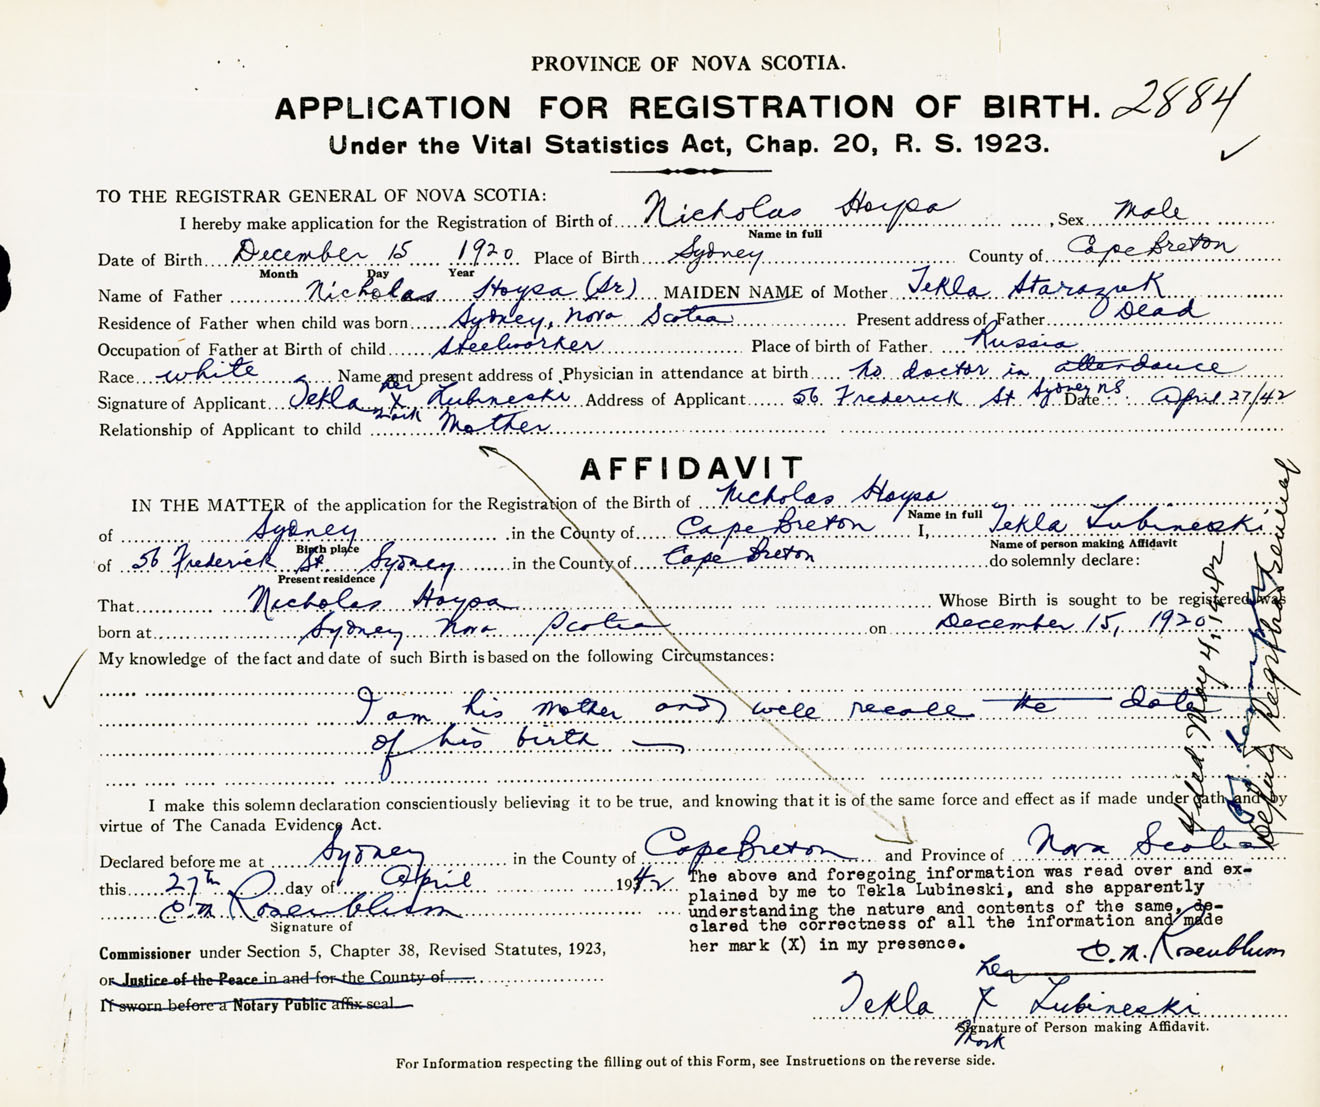 PROVINCE OF NOVA SCOTIA.
APPLICATION FOR REGISTRATION OF BIRTH. 2884
Under the Vital Statistics Act, Chap. 20, R. S. 1923.
TO THE REGISTRAR GENERAL OF NOVA SCOTIA:
I hereby make application for the Registration of Birth of Nicholas Hoysa, Sex Male
Name in full
Date of Birth December 15 1920 Place of Birth Sydney County of Cape Breton
Month Day Year
Name of Father Nicholas Hoysa (Sr) MAIDEN NAME of Mother Tekla Starazuk
Residence of Father when child was born Sydney, Nova Scotia Present address of Father Dead
Occupation of Father at Birth of child steelworker Place of birth of Father Russia
Race white Name and present address of Physician in attendance at birth no doctor in attendance
Signature of Applicant Tekla her X mark Lubineski Address of Applicant 56 Frederick St Sydney N.S. Date April 27/42
Relationship of Applicant to child Mother
AFFIDAVIT
IN THE MATTER of the application for the Registration of the Birth of Nicholas Hoysa
Name in full
of Sydney in the County of Cape Breton I, Tekla Lubineski
Birth place Name of person making Affidavit
of 56 Frederick St. Sydney in the County of Cape Breton do solemnly declare:
Present residence
That Nicholas Hoysa Whose Birth is sought to be registered was
born at Sydney Nova Scotia on December 15, 1920
My knowledge of the fact and date of such Birth is based on the following Circumstances:
I am his mother and well recall the date
of his birth
I make this solemn declaration conscientiously believing it to be true, and knowing that it is of the same force and effect as if made under oath and by
virtue of The Canada Evidence Act.
Declared before me at Sydney in the County of Cape Breton and Province of Nova Scotia
this 27th day of April 1942
C. M. Rosenblum
Signature of
The above and foregoing information was read over and ex-
plained by me to Tekla Lubineski, and she apparently
understanding the nature and contents of the same, de-
clared the correctness of all the information and made
her mark (X) in my presence.
C. M. Rosenblum
Commissioner under Section 5, Chapter 38, Revised Statutes, 1923,
or Justice of the Peace in and for the County of
If sworn before a Notary Public affix seal
Tekla her X mark Lubineski
Signature of Person making Affidavit.
For Information respecting the filling out of this Form, see Instructions on the reverse side.
Filed May 4, 1942
Deputy Registrar General